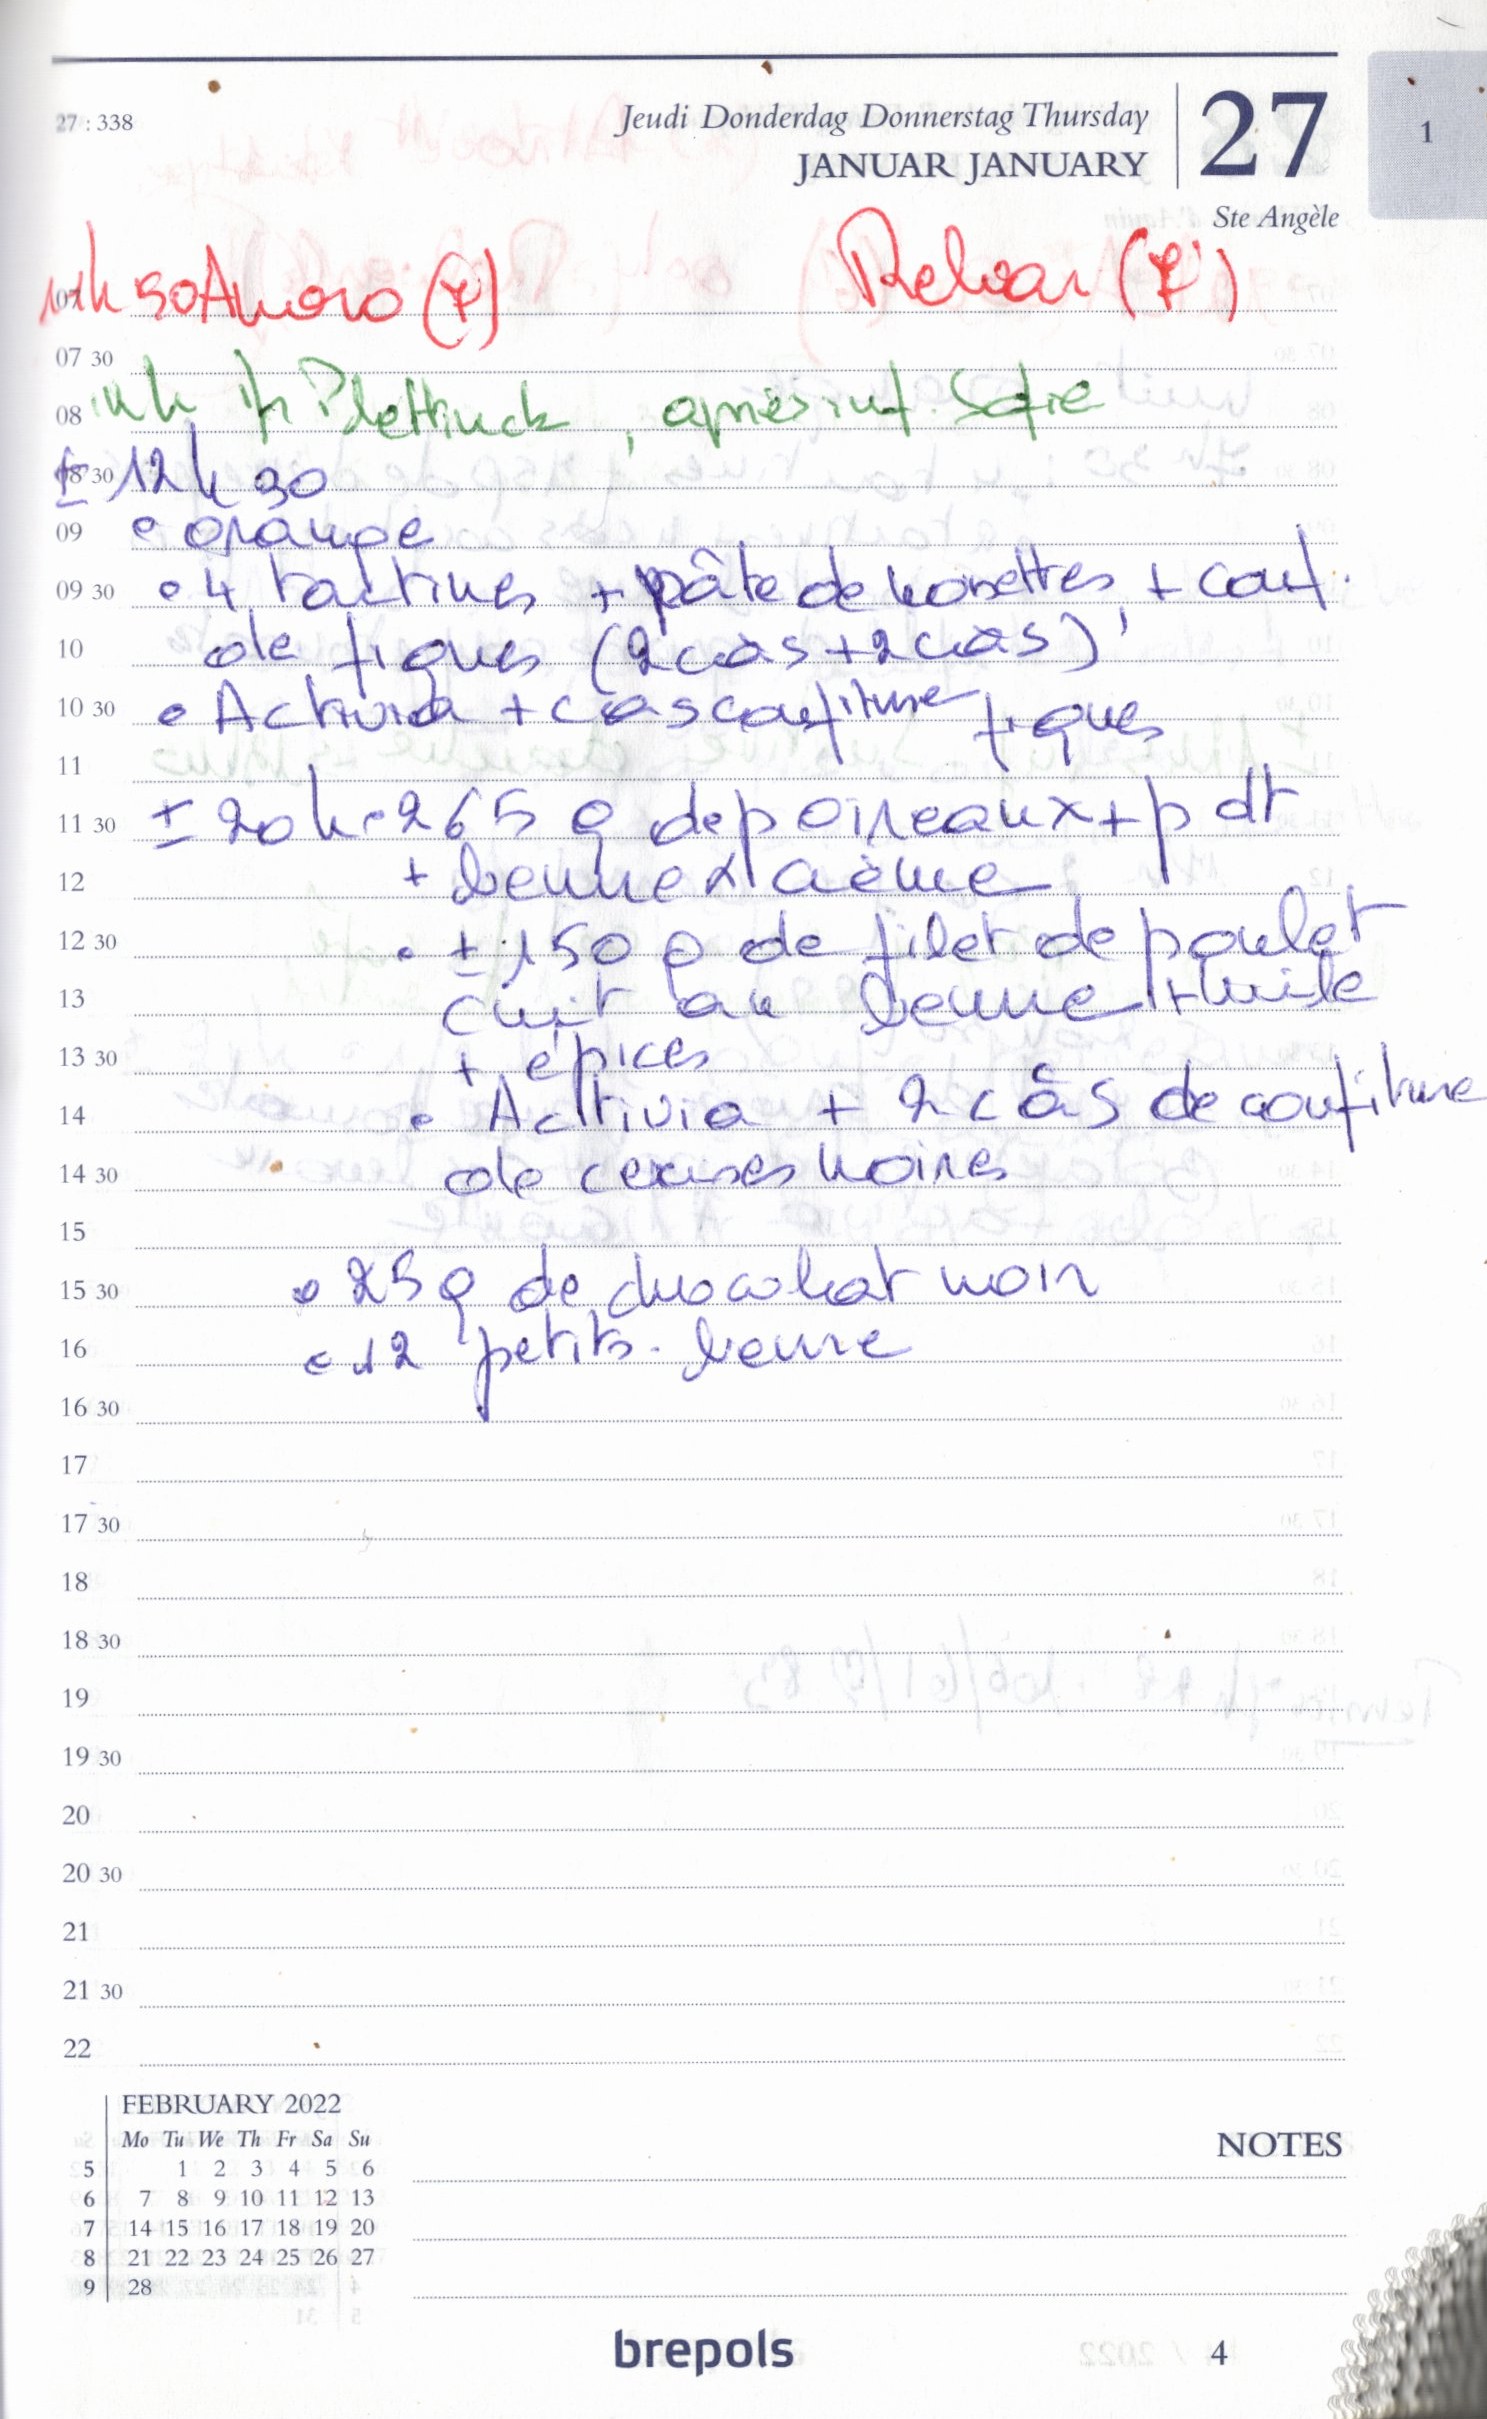 27 : 338
Jeudi Donderdag Donnerstag Thursday
JANUAR JANUARY
27
1
Ste Angèle
07
07 30
08
après Sofie
08 30
± 12h30
09
• orange
09 30
• 4 tartines + pâte de noisettes + conf.
10
de figues (2 càs + 2 càs)
10 30
• Activia + càs confiture figues
11
11 30
± 20h • 265 g de poireaux + pdt
12
+ beurre crème
12 30
• ± 150 g de filet de poulet
13
cuit au beurre + huile
13 30
+ épices
14
• Activia + 2 càs de confiture
14 30
de cerises noires
15
15 30
• 25 g de chocolat noir
16
• 12 petits-beurre
16 30
17
17 30
18
18 30
19
19 30
20
20 30
21
21 30
22
FEBRUARY 2022
Mo Tu We Th Fr Sa Su
5 1 2 3 4 5 6
6 7 8 9 10 11 12 13
7 14 15 16 17 18 19 20
8 21 22 23 24 25 26 27
9 28
NOTES
brepols
4